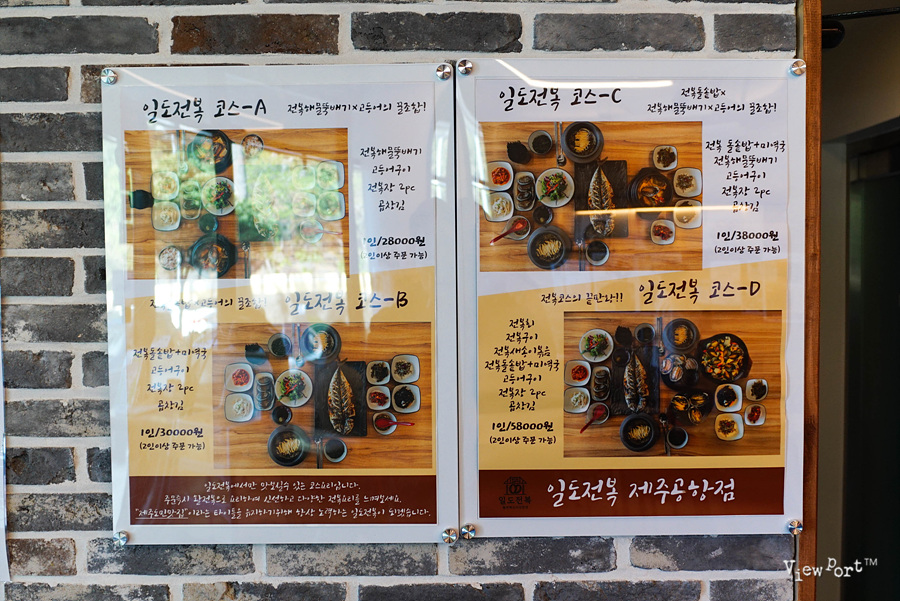 일도전복 코스-A
전복해물뚝배기x고등어의 꿀조합!
전복해물뚝배기
고등어구이
전복장 2pc
곱창김
1인/28000원
(2인이상 주문 가능)
x고등어의 꿀조합!
일도전복 코스-B
전복돌솥밥+미역국
고등어구이
전복장 2pc
곱창김
1인/30000원
(2인이상 주문 가능)
일도전복에서만 맛보실수 있는 코스요리입니다.
주문즉시 활전복으로 요리하여 신선하고 다양한 전복요리를 느껴보세요.
"제주도민맛집"이라는 타이틀을 유지하기위해 항상 노력하는 일도전복이 되겠습니다.
일도전복 코스-C
전복돌솥밥x
전복해물뚝배기x고등어의 꿀조합!
전복 돌솥밥+미역국
전복해물뚝배기
고등어구이
전복장 2pc
곱창김
1인/38000원
(2인이상 주문 가능)
전복코스의 끝판왕!!
일도전복 코스-D
전복회
전복구이
전복새송이볶음
전복돌솥밥+미역국
고등어구이
전복장 2pc
곱창김
1인/58000원
(2인이상 주문 가능)
일도전복
일도전복 제주공항점
ViewPort™